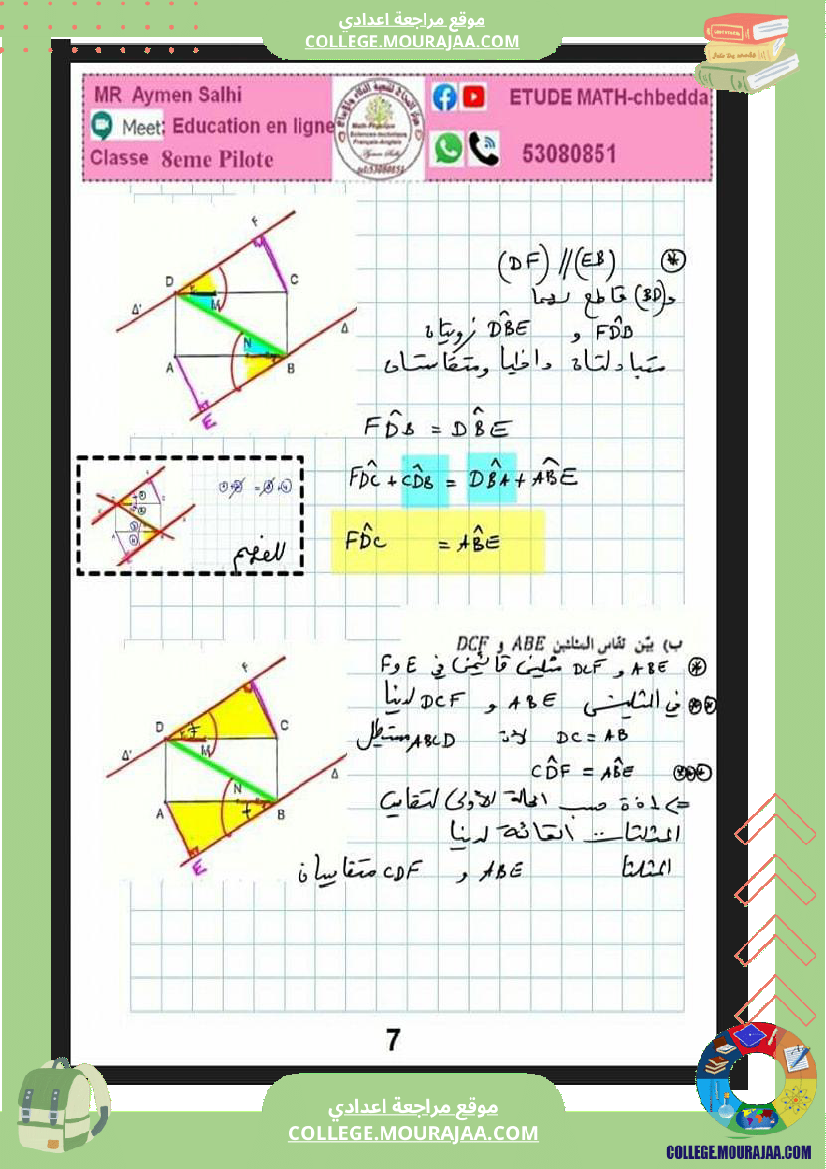 موقع مراجعة اعدادي
COLLEGE.MOURAJAA.COM
MR Aymen Salhi
Meet: Education en ligne
Classe 8eme Pilote
ETUDE MATH-chbedda
53080851
(DF) // (EB)
و (BD) قاطع لهما
FD̂B و DB̂E زويتان
متبادلتان داخليا ومتقايستان
FD̂B = DB̂E
FD̂C + CD̂B = DB̂A + AB̂E
FD̂C = AB̂E
للفهم
F
D
C
M
Δ'
Δ
N
A
B
E
ب) بيّن تقايس المثلثين ABE و DCF
ABE و DCF مثلثين قائمين في E و F
في المثلثين ABE و DCF لدينا
DC = AB لان ABCD مستطيل
CD̂F = AB̂E
=> إذن حسب الحالة الأولى لتقايس
المثلثات القائمة لدينا
المثلثان ABE و CDF متقايسان
F
D
C
M
Δ'
Δ
N
A
B
E
7
موقع مراجعة اعدادي
COLLEGE.MOURAJAA.COM
COLLEGE.MOURAJAA.COM